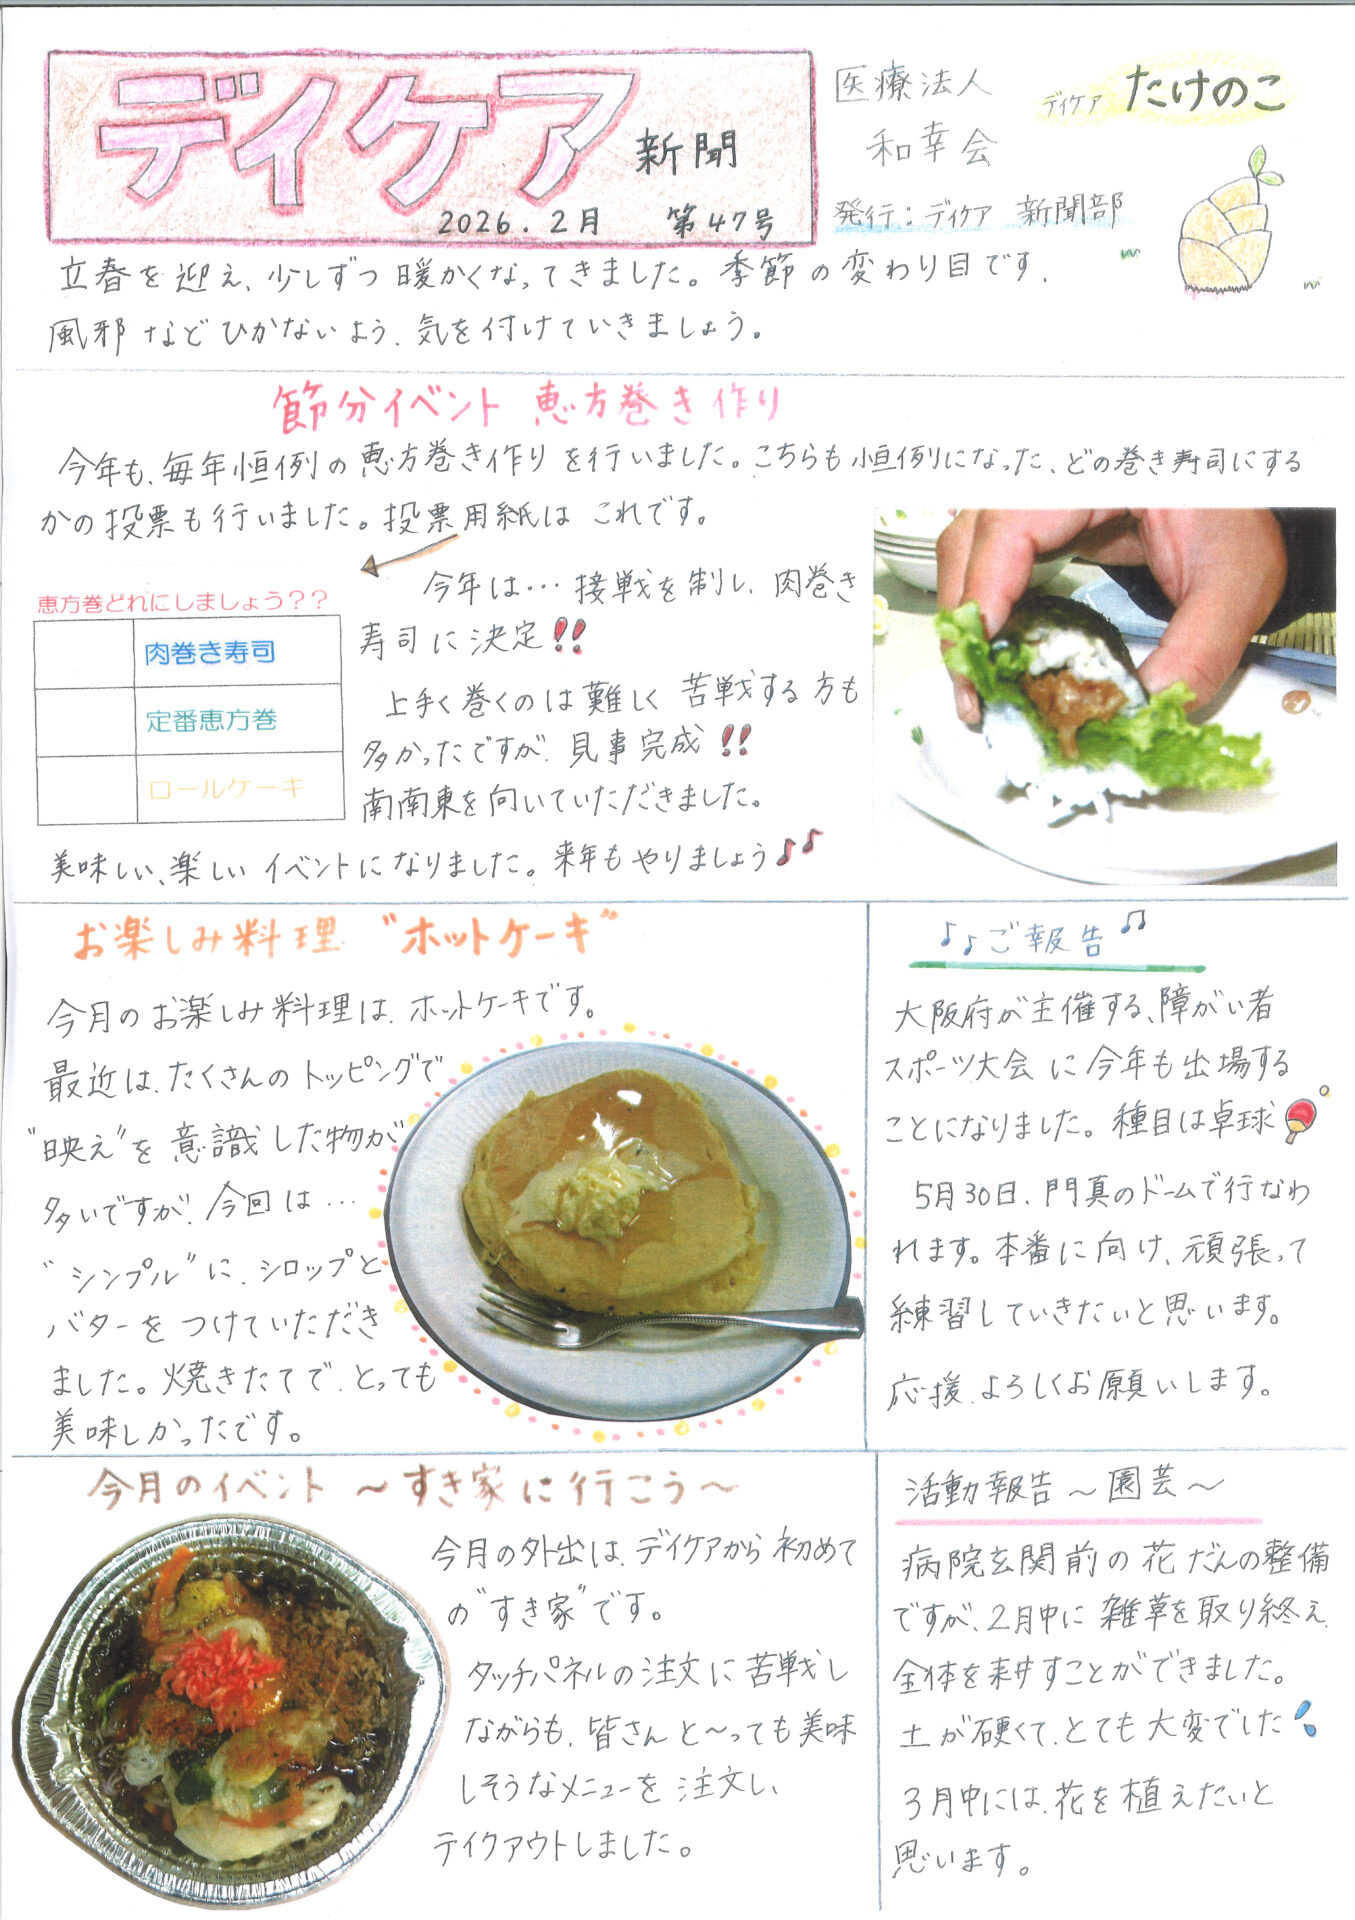 デイケア新聞
2026.2月 第47号
医療法人
和幸会
デイケア たけのこ
発行:デイケア 新聞部
立春を迎え、少しずつ暖かくなってきました。季節の変わり目です、
風邪などひかないよう、気を付けていきましょう。
節分イベント 恵方巻き作り
今年も、毎年恒例の恵方巻き作りを行いました。こちらも恒例になった、どの巻き寿司にする
かの投票も行いました。投票用紙は これです。
恵方巻どれにしましょう??
肉巻き寿司
定番恵方巻
ロールケーキ
今年は…接戦を制し、肉巻き
寿司に決定!!
上手く巻くのは難しく苦戦する方も
多かったですが、見事完成!!
南南東を向いていただきました。
美味しい、楽しいイベントになりました。来年もやりましょう♪♪
お楽しみ料理 "ホットケーキ"
今月のお楽しみ料理は、ホットケーキです。
最近は、たくさんのトッピングで
"映え"を意識した物が
多いですが、今回は…
"シンプル"に、シロップと
バターをつけていただき
ました。焼きたてで、とっても
美味しかったです。
♪♪ご報告♫
大阪府が主催する、障がい者
スポーツ大会に今年も出場する
ことになりました。種目は卓球
5月30日、門真のドームで行なわ
れます。本番に向け、頑張って
練習していきたいと思います。
応援、よろしくお願いします。
今月のイベント 〜すき家に行こう〜
今月の外出は、デイケアから初めて
の"すき家"です。
タッチパネルの注文に苦戦し
ながらも、皆さんと〜っても美味
しそうなメニューを注文し、
テイクアウトしました。
活動報告〜園芸〜
病院玄関前の花だんの整備
ですが、2月中に雑草を取り終え、
全体を耕すことができました。
土が硬くて、とても大変でした
3月中には、花を植えたいと
思います。